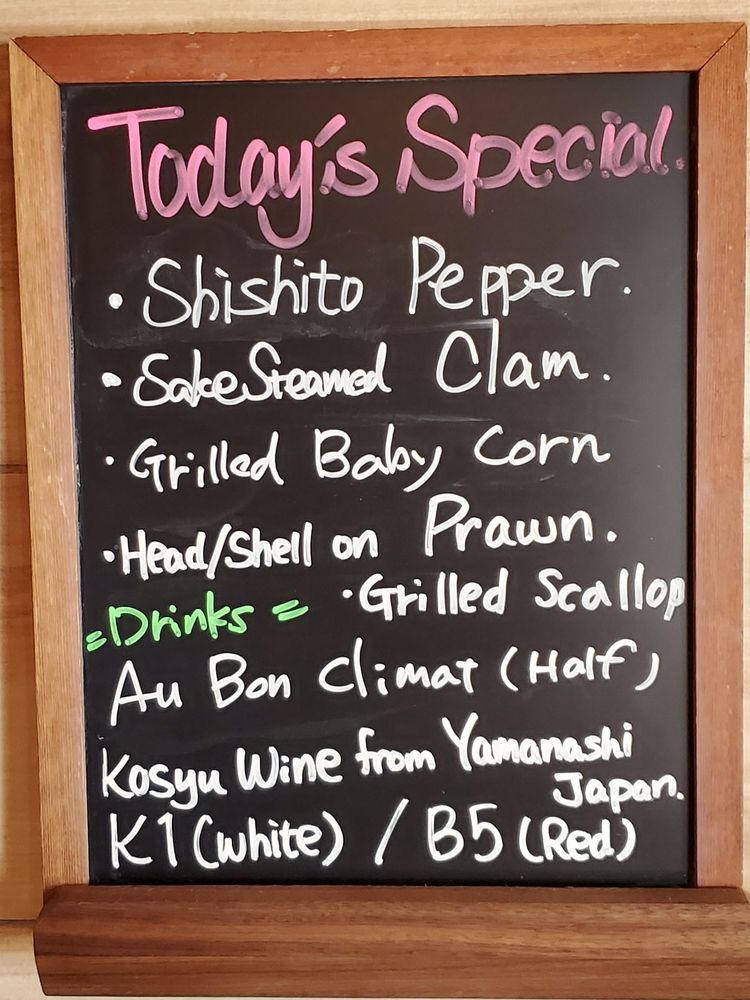 Today's Special.
· Shishito Pepper.
· Sake Steamed Clam.
· Grilled Baby Corn
· Head/Shell on Prawn.
· Grilled Scallop
= Drinks =
Au Bon Climat (Half)
Kosyu Wine from Yamanashi
Japan.
K1 (white) / B5 (Red)